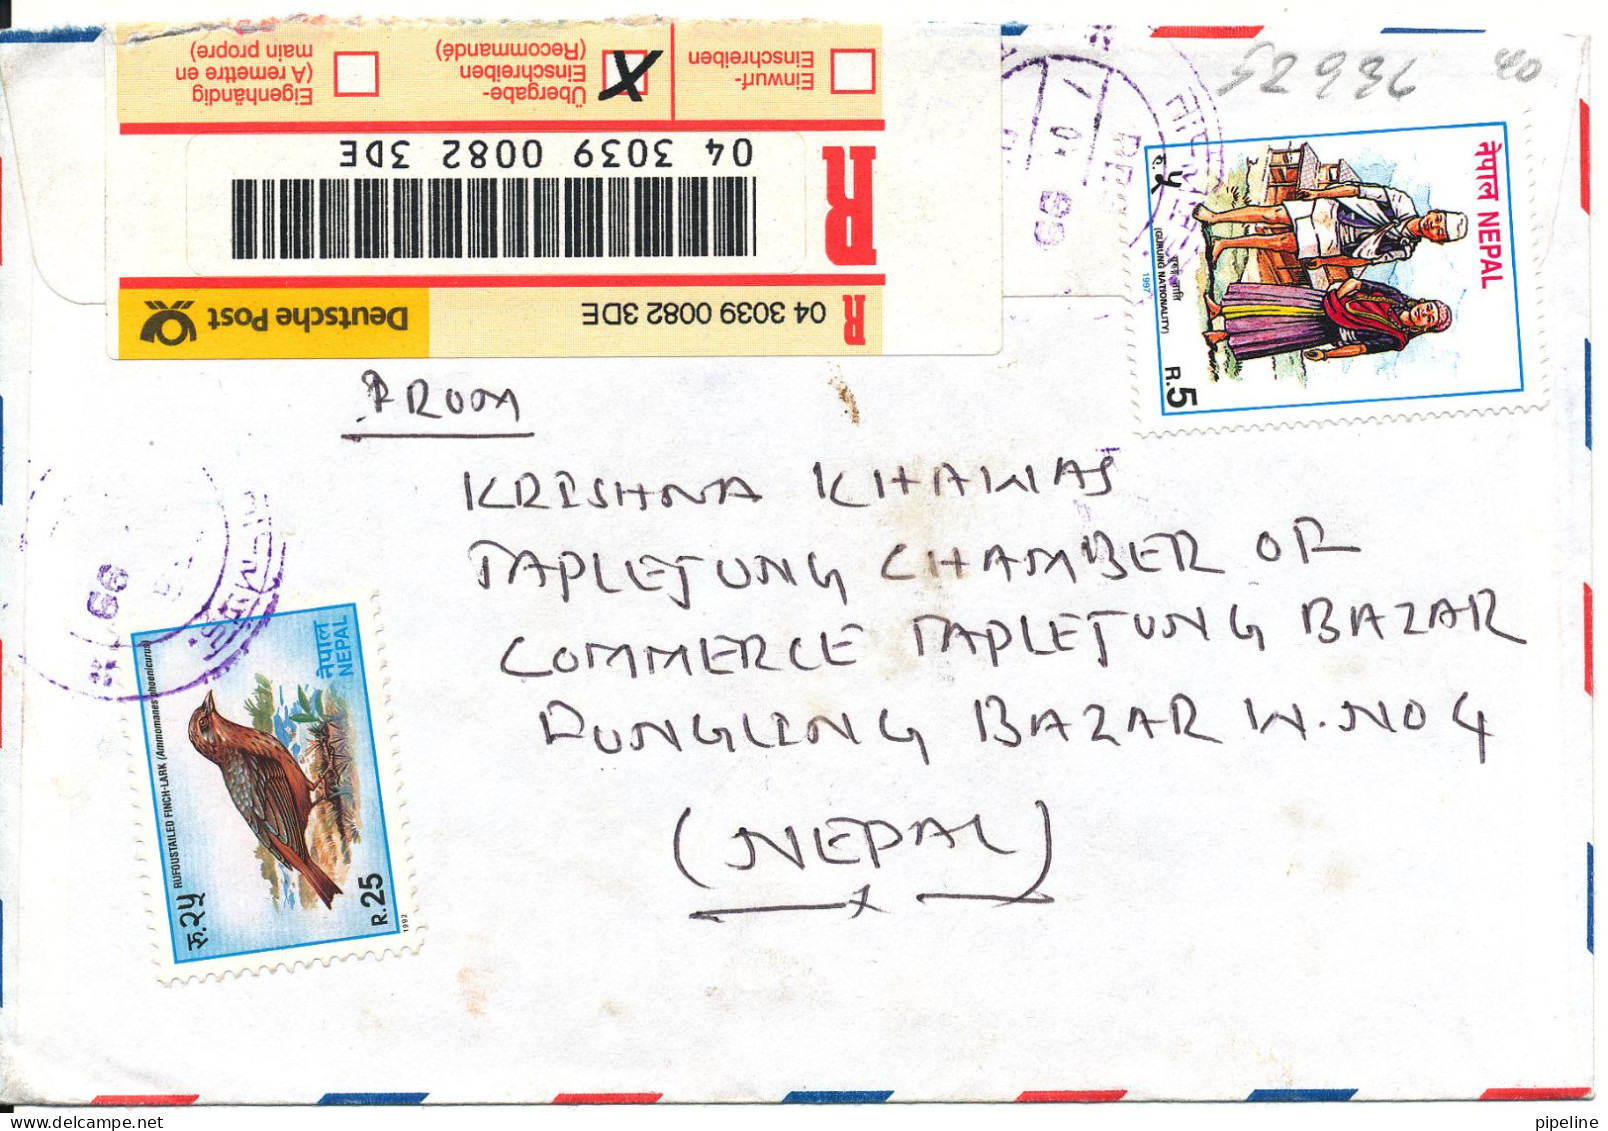 Eigenhändig
(A remettre en
main propre)
Übergabe-
Einschreiben
(Recommandé)
X
Einwurf-
Einschreiben
R
04 3039 0082 3DE
R 04 3039 0082 3DE
Deutsche Post
52936
40
नेपाल NEPAL
रु. ५
गुरुङ जाति
(GURUNG NATIONALITY)
1997
R.5
99
FROM
KRISHNA KHAWAS
TAPLEJUNG CHAMBER OF
COMMERCE TAPLEJUNG BAZAR
FUNGLING BAZAR W.NO 4
(NEPAL)
x
99
नेपाल
NEPAL
RUFOUSTAILED FINCH-LARK (Ammomanes phoenicurus)
रु. २५
R.25
1992
pipeline